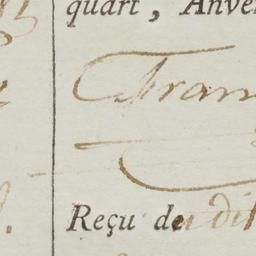 quart, Anve
Fran
Reçu de dit